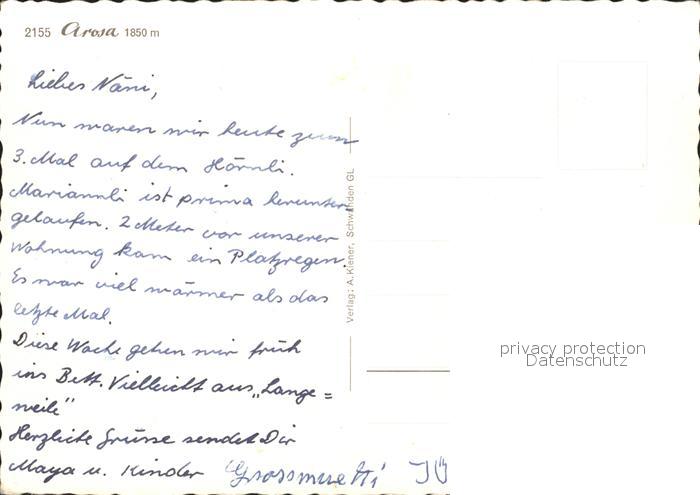 2155 Arosa 1850 m
Liebes Näni,
Nun waren wir heute zum
3. Mal auf dem Hörnli.
Mariannli ist prima herunter
gelaufen. 2 Meter vor unserer
Wohnung kam ein Platzregen.
Es war viel wärmer als das
letzte Mal.
Diese Woche gehen wir früh
ins Bett. Vielleicht aus „Lange=
weile"
Herzliche Grüsse sendet Dir
Maya u. Kinder Grossmuetti
Verlag: A. Kiener, Schwanden GL
privacy protection
Datenschutz